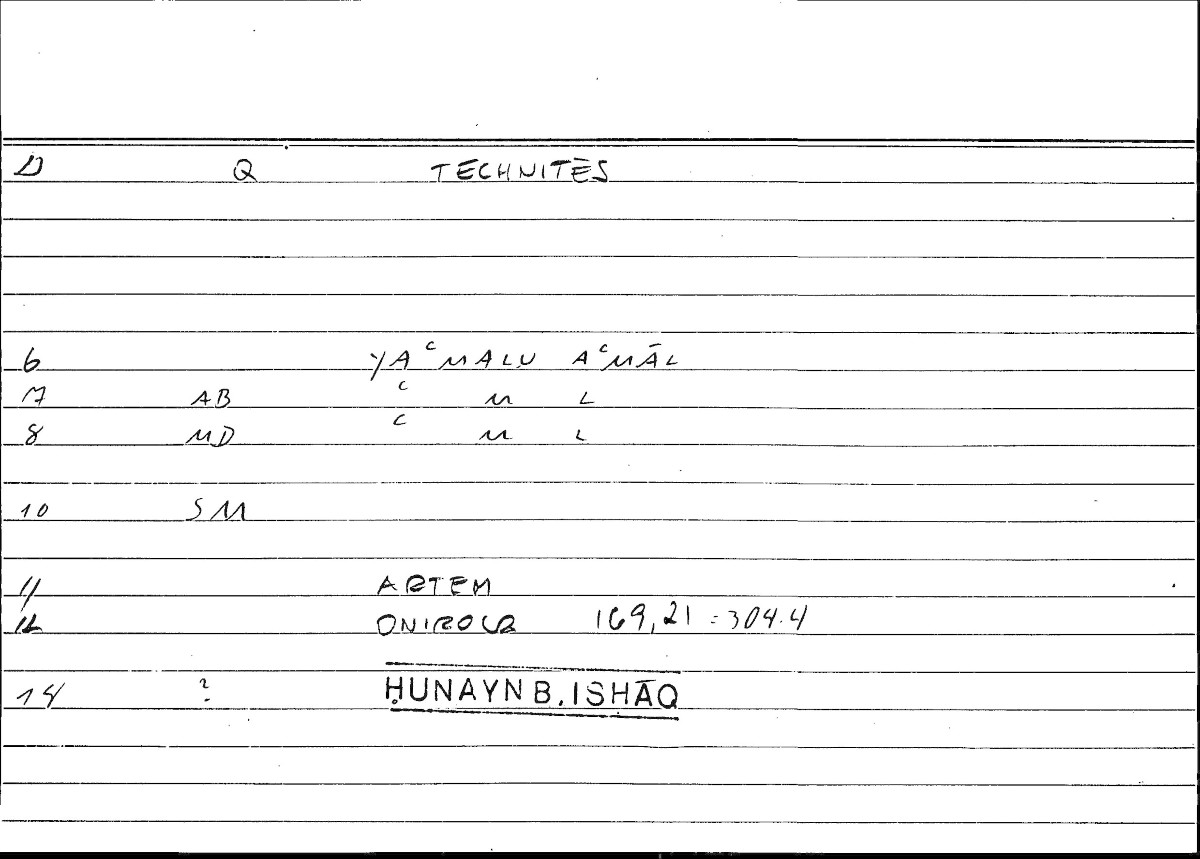 D Q TECHNITĒS
6 YAᶜMALU AᶜMĀL
7 AB ᶜ M L
8 MD ᶜ M L
10 SM
11 ARTEM
12 ONIROCR 169,21 = 304.4
14 ? ḤUNAYN B. ISHĀQ